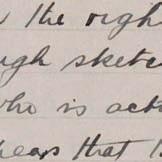 the right
ugh sketch
who is act
hears that